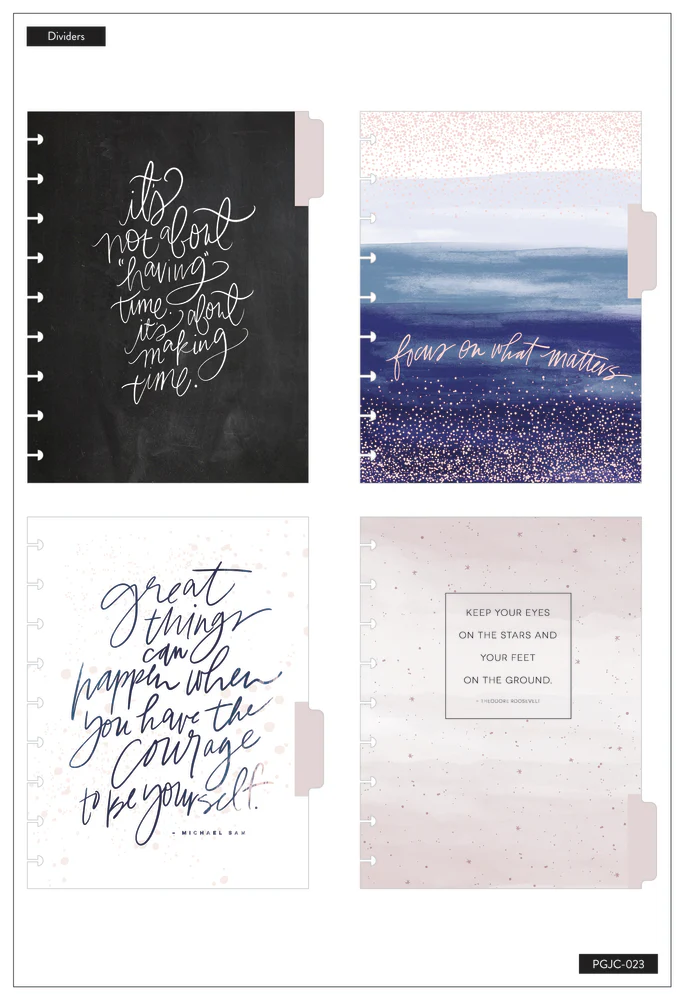 Dividers
it's
not about
"having"
time. it's about
making
time.
focus on what matters
great
things
can
happen when
you have the
courage
to be yourself.
- MICHAEL SAM
KEEP YOUR EYES
ON THE STARS AND
YOUR FEET
ON THE GROUND.
- THEODORE ROOSEVELT
PGJC-023